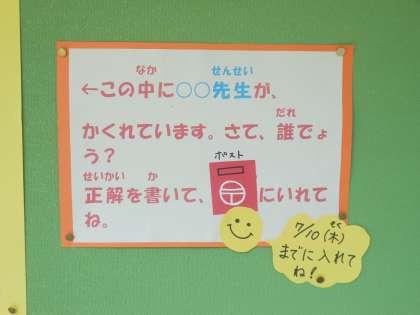 なか せんせい
←この中に○○先生が、
だれ
かくれています。さて、誰でしょ
う？
せいかい か ポスト
正解を書いて、〒にいれて
ね。
もく
7/10(木)
までに入れて
ね！